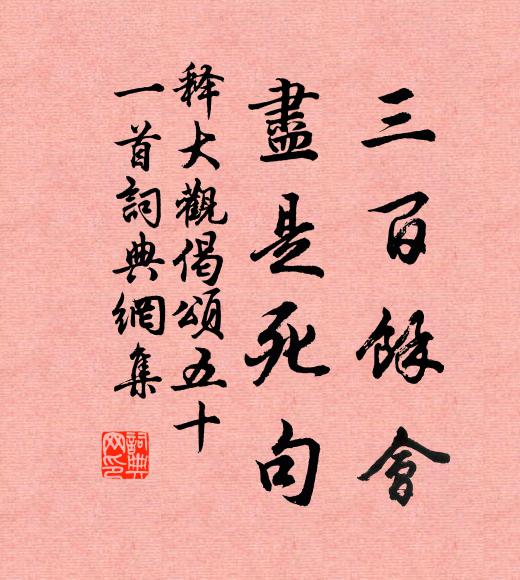 三百餘會
盡是死句
释大觀偈頌五十
一首詞典網集
詞典
网印